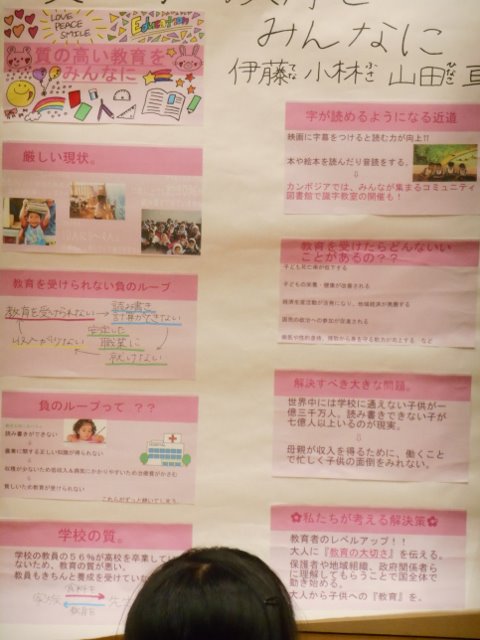 みんなに
伊藤 小林 山田
LOVE
PEACE
SMILE
Education
質の高い教育を
みんなに
厳しい現状。
教育を受けられない負のループ
教育を受けられない→読み書き
計算ができない
安定した
職業に
就けない
収入がない
負のループって ??
読み書きができない
農業に関する正しい知識が得られない
収穫が少ないため低収入&病気にかかりやすいため治療費がかさむ
貧しいため教育が受けられない
これがずっと続いてしまう。
学校の質。
学校の教員の56%が高校を卒業してい
ないため、教育の質が悪い。
教員もきちんと養成を受けていな
家族
教育を
字が読めるようになる近道
映画に字幕をつけると読む力が向上!!
本や絵本を読んだり音読をする。
⇩
カンボジアでは、みんなが集まるコミュニティ
図書館で識字教室の開催も!
教育を受けたらどんないい
ことがあるの??
子ども死亡率が低下する
子どもの栄養・健康が改善される
経済生産活動が活発になり、地域経済が発展する
国民の政治への参加が促進される
解決すべき大きな問題。
世界中には学校に通えない子供が一
億三千万人。読み書きできない子が
七億人以上いるのが現実。
⇩
母親が収入を得るために、働くこと
で忙しく子供の面倒をみれない。
✿私たちが考える解決策✿
教育者のレベルアップ!!
大人に『教育の大切さ』を伝える。
保護者や地域組織、政府関係者ら
に理解してもらうことで国全体で
動き始める。
大人から子供への『教育』を。